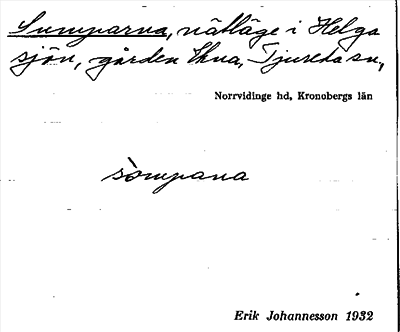 Sumparna, nätläge i Helga
sjön, gården Ekna, Tjureda sn,
Norrvidinge hd, Kronobergs län
sòmpana
Erik Johannesson 1932